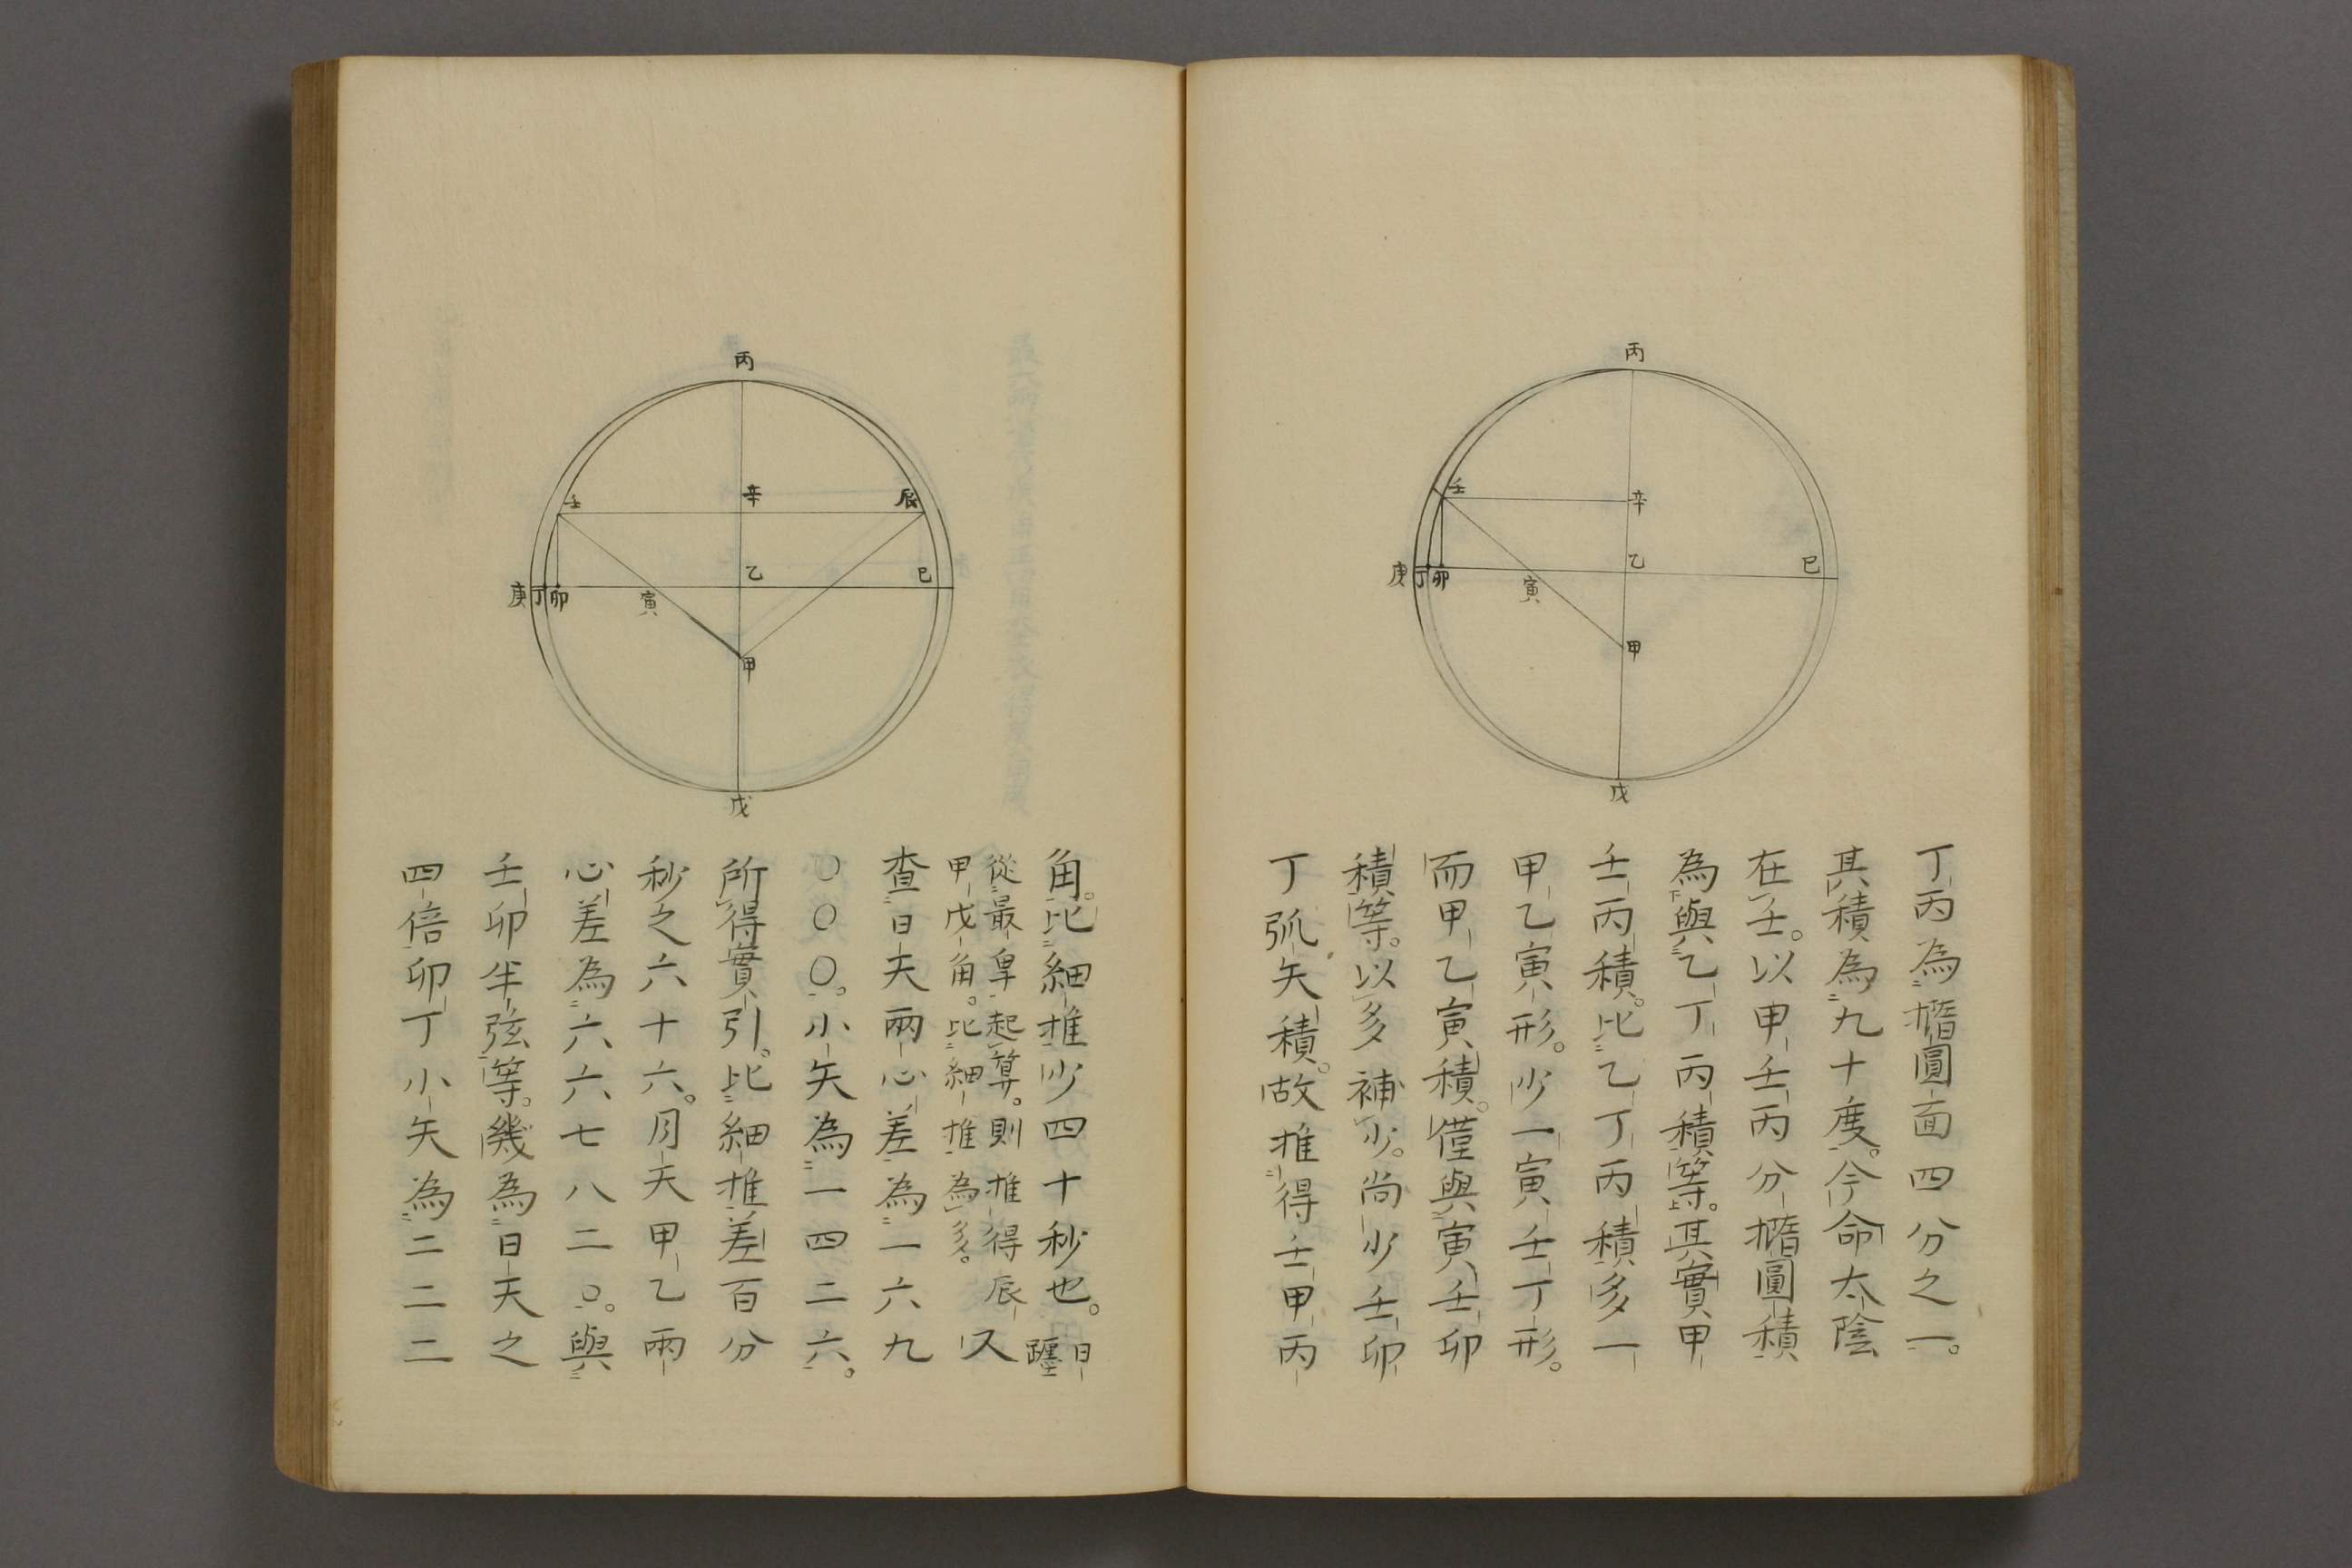 丙
壬
辛
乙
巳
庚
丁
卯
寅
甲
戊
丁丙為橢圓面四分之一。
其積為九十度。今命太陰
在壬。以甲壬丙分橢圓積
為與乙丁丙積等。其實甲
壬丙積。比乙丁丙積多一
甲乙寅形。少一寅壬丁形。
而甲乙寅積。僅與寅壬卯
積等。以多補少。尚少壬卯
丁弧矢積。故推得壬甲丙
丙
壬
辛
辰
乙
巳
庚
丁
卯
寅
甲
戊
角。比細推少四十秒也。日躔
從最卑起算。則推得辰
甲戊角。比細推為多。又
查日天兩心差為一六九
〇〇〇。小矢為一四二六。
所得實引。比細推差百分
秒之六十六。月天甲乙兩
心差為六六七八二〇。與
壬卯半弦等。幾為日天之
四倍卯丁小矢為二二二